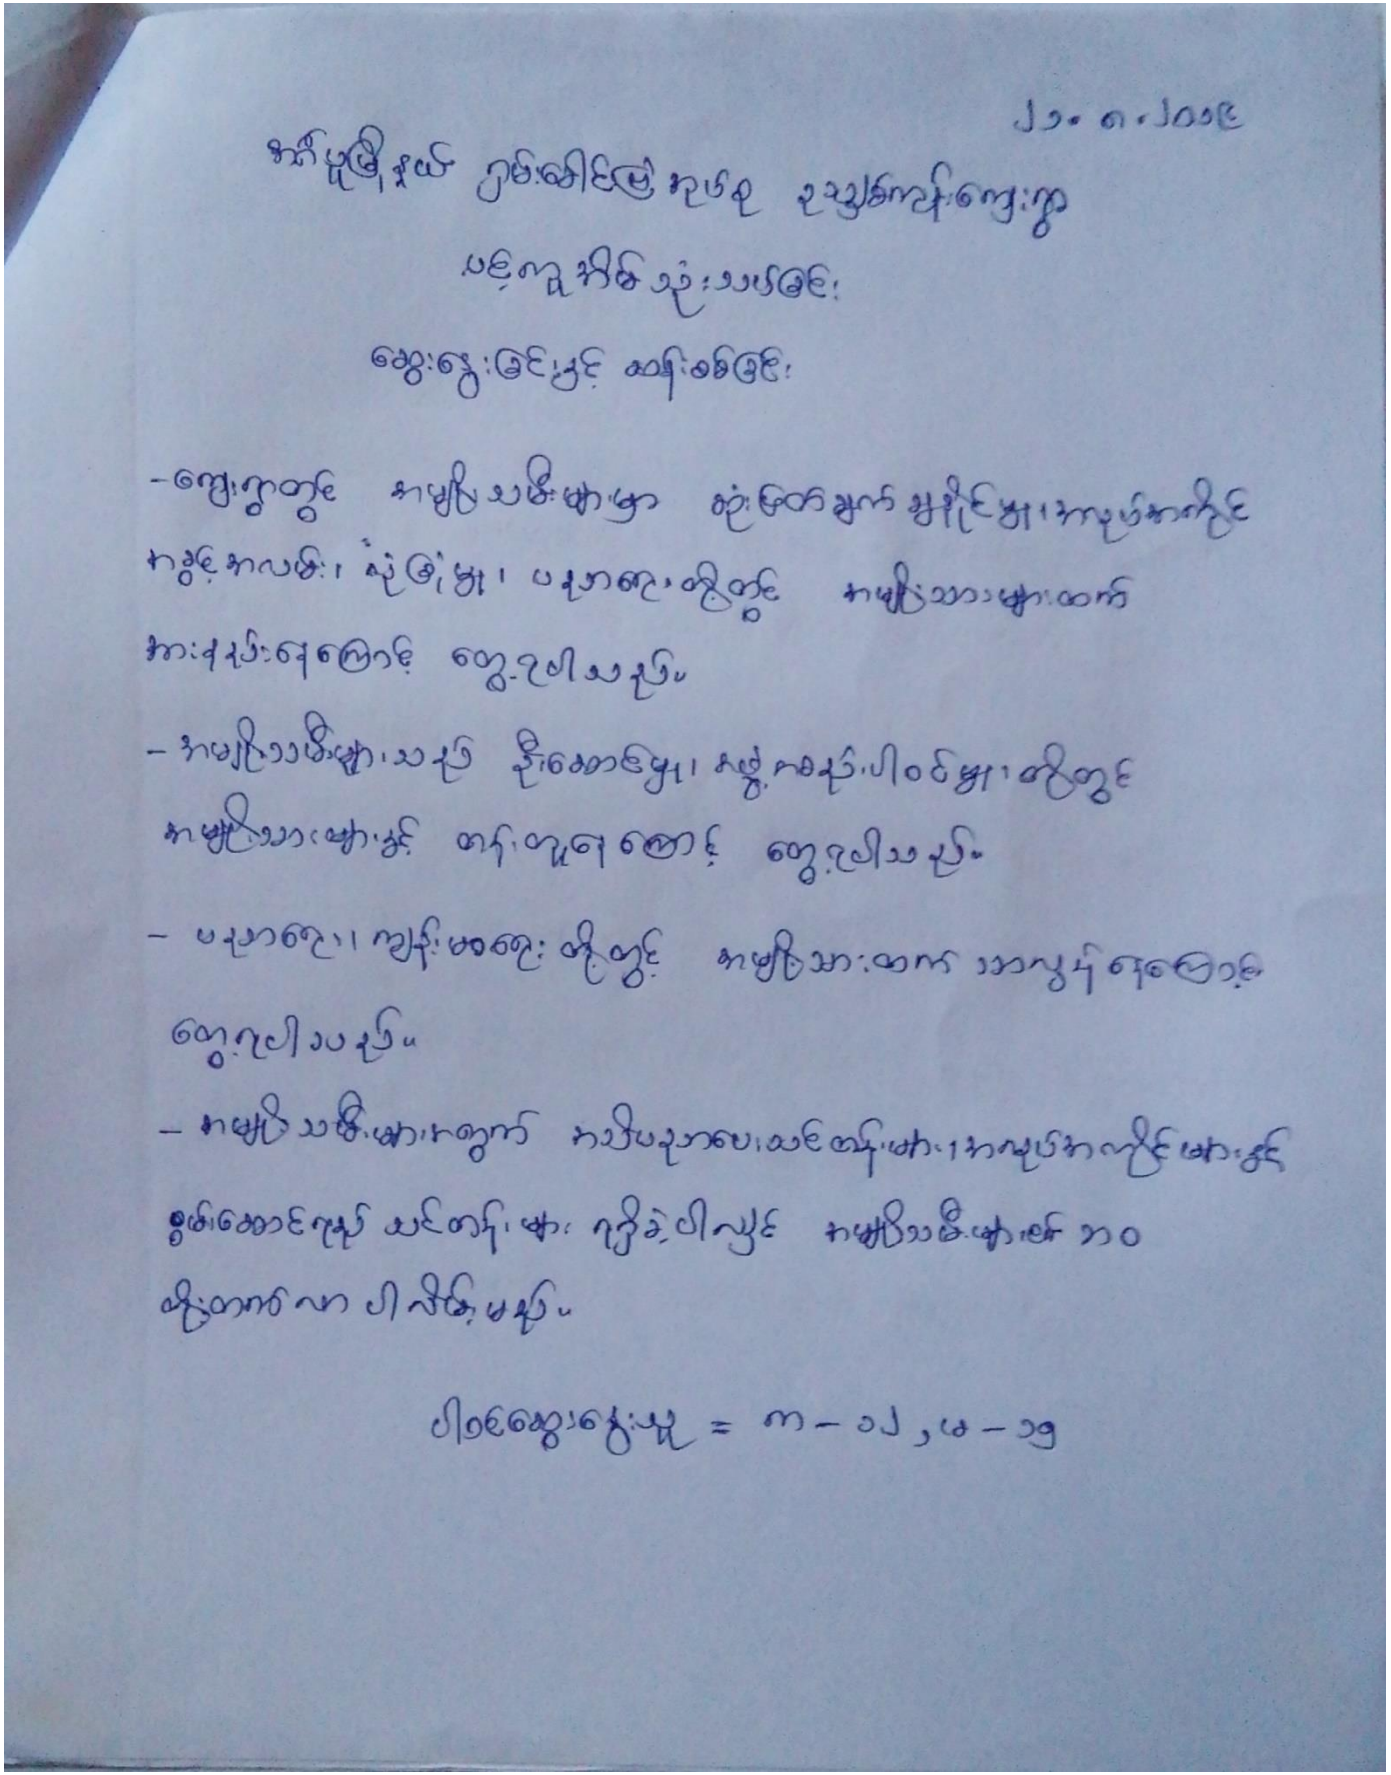 ၂၁.၈.၂၀၁၉
အင်္ဂပူမြို့နယ် ရှမ်းခေါင်မြဲအုပ်စု ကျွန်းကျေးရွာ
ပင့်ကူအိမ်သုံးသပ်ခြင်း
ဆွေးနွေးခြင်းနှင့် ဆန်းစစ်ခြင်း
-ကျေးရွာတွင် အမျိုးသမီးများမှာ ဆုံးဖြတ်ချက်ချနိုင်မှု၊ အလုပ်အကိုင်
အခွင့်အလမ်း၊ လုံခြုံမှု၊ ပညာရေး တို့တွင် အမျိုးသားများထက်
အားနည်းနေကြောင့် တွေ့ရပါသည်။
- အမျိုးသမီးများသည် ဦးဆောင်မှု၊ အဖွဲ့အစည်းပါဝင်မှု၊ တို့တွင်
အမျိုးသားများနှင့် တန်းတူနေကြောင့် တွေ့ရပါသည်။
- ပညာရေး၊ ကျန်းမာရေး တို့တွင် အမျိုးသားထက် သာလွန်နေကြောင့်
တွေ့ရပါသည်။
- အမျိုးသမီးများအတွက် အသိပညာပေးသင်တန်းများ၊ အလုပ်အကိုင်များနှင့်
စွမ်းဆောင်ရည် သင်တန်းများ ရရှိခဲ့ပါလျှင် အမျိုးသမီးများ၏ ဘဝ
တိုးတက်လာပါလိမ့်မည်။
ပါဝင်ဆွေးနွေးသူ = ကာ - ၁၂ , မ - ၁၅